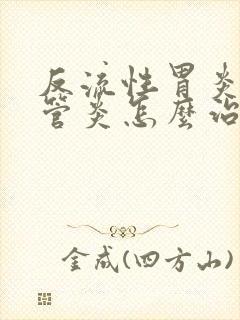 反流性胃炎
管炎怎麼治
金成(四方山)